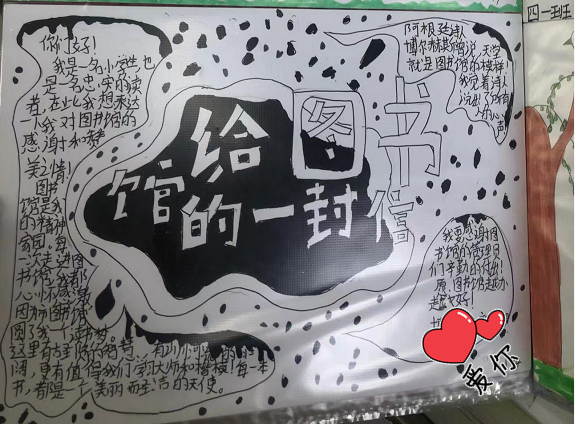 你们好!
我是一名小学生,也
是一名忠实的读
者,在此我想表达
一下我对图书馆的
感谢和赞
美之情!
图书
馆是我
的精神
家园,每
一次走进图
书馆,我都
心
因为图书馆
圆了我一个读书梦
这里有
阔,更有值得我们学习大师和楷模!每一本
书,都是一个美丽而圣洁的天使。
给图书
馆的一封信
阿根廷诗人
博尔赫斯曾说,天堂
就是图书馆的模样
我觉着诗人
说出了所有
人的心
声
我要感谢图
书馆的管理员
们辛勤的付出!
愿图书馆越办
越好!
爱你
四一班